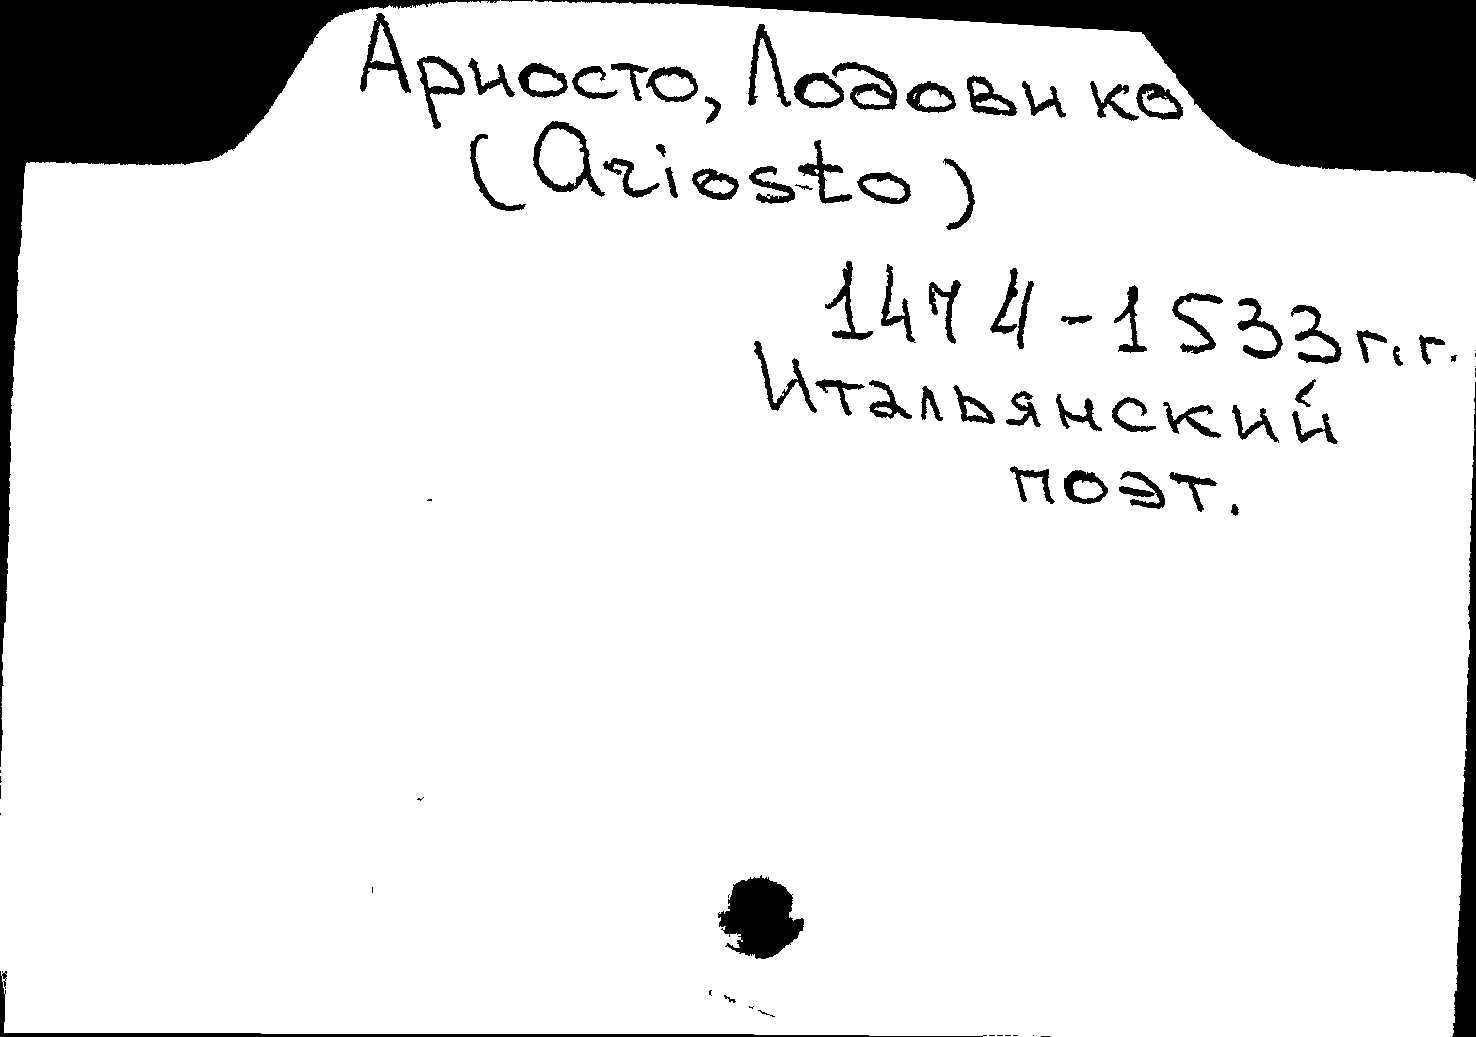 Ариосто, Лодовико
(Ariosto)
1474-1533 г.г.
Итальянский
поэт.